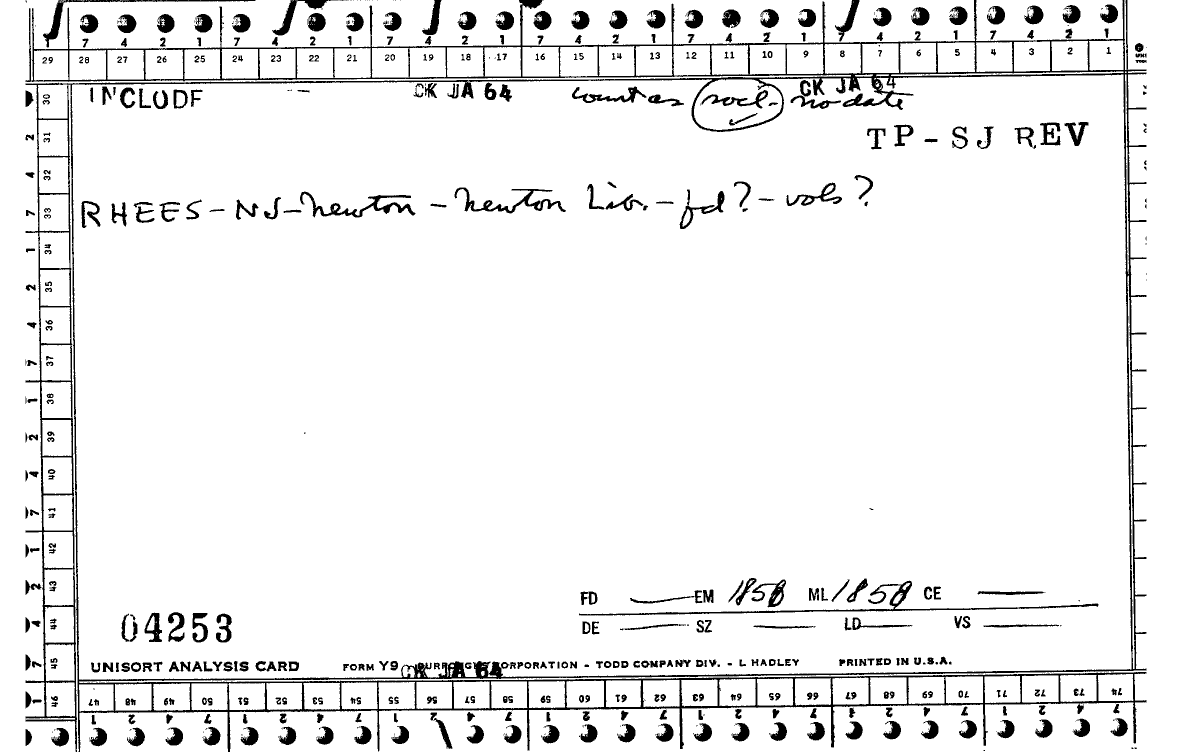 7 4 2 1 7 4 2 1 7 4 2 1 7 4 2 1 7 4 2 1 7 4 2 1 7 4 2 1
29 28 27 26 25 24 23 22 21 20 19 18 17 16 15 14 13 12 11 10 9 8 7 6 5 4 3 2 1
INCLUDE CK JA 64 count as socl - no date CK JA 64
TP - SJ REV
RHEES - NJ - Newton - Newton Lib. - fd? - vols?
30
2 31
4 32
7 33
1 34
2 35
4 36
7 37
1 38
2 39
4 40
7 41
1 42
2 43
4 44
7 45
1 46
FD — EM 1858 ML 1858 CE —
DE — SZ — LD — VS —
04253
UNISORT ANALYSIS CARD FORM Y9 BURROUGHS CORPORATION - TODD COMPANY DIV. - L HADLEY PRINTED IN U.S.A.
CK JA 64
47 48 49 50 51 52 53 54 55 56 57 58 59 60 61 62 63 64 65 66 67 68 69 70 71 72 73 74
1 2 4 7 1 2 4 7 1 2 4 7 1 2 4 7 1 2 4 7 1 2 4 7 1 2 4 7